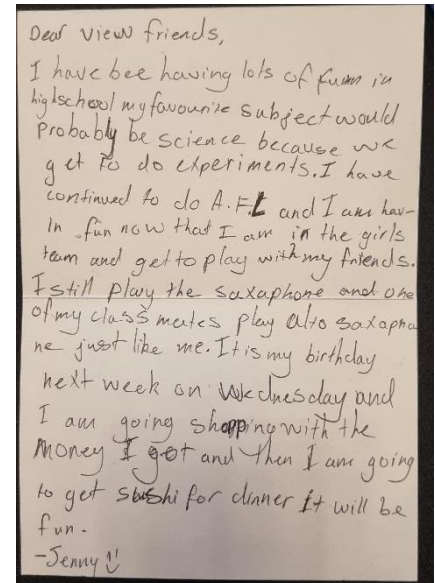 Dear view friends,
I have bee having lots of fumn in
highschool my favourite subject would
probably be science because we
get to do experiments. I have
continued to do A.F.L and I am hav-
In fun now that I am in the girls
team and get to play with my friends.
I still play the saxaphone and one
of my class mates play alto saxapho
ne just like me. It is my birthday
next week on Wednesday and
I am going shopping with the
money I got and then I am going
to get sushi for dinner it will be
fun.
-Jenny